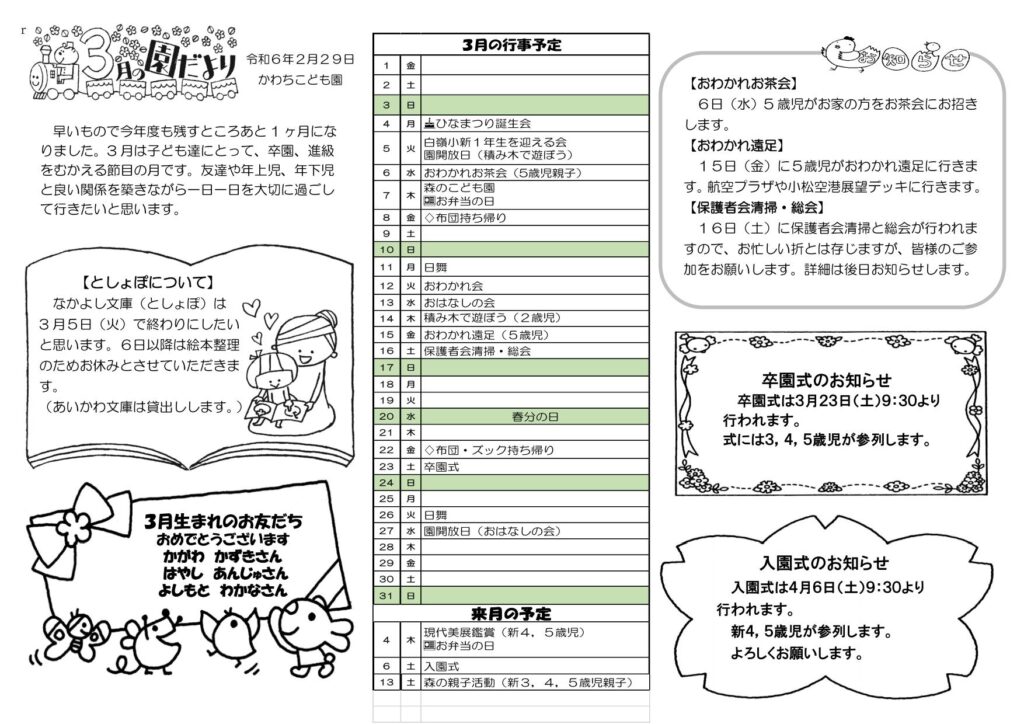 r
3月の園だより
令和6年2月29日
かわちこども園
早いもので今年度も残すところあと1ヶ月にな
りました。3月は子ども達にとって、卒園、進級
をむかえる節目の月です。友達や年上児、年下児
と良い関係を築きながら一日一日を大切に過ごし
て行きたいと思います。
【としょぽについて】
なかよし文庫（としょぽ）は
3月5日（火）で終わりにしたい
と思います。6日以降は絵本整理
のためお休みとさせていただきま
す。
（あいかわ文庫は貸出しします。）
3月生まれのお友だち
おめでとうございます
かがわ かずきさん
はやし あんじゅさん
よしもと わかなさん
3月の行事予定
1 金
2 土
3 日
4 月 ひなまつり誕生会
5 火 白嶺小新1年生を迎える会
園開放日（積み木で遊ぼう）
6 水 おわかれお茶会（5歳児親子）
7 木 森のこども園
お弁当の日
8 金 ◇布団持ち帰り
9 土
10 日
11 月 日舞
12 火 おわかれ会
13 水 おはなしの会
14 木 積み木で遊ぼう（2歳児）
15 金 おわかれ遠足（5歳児）
16 土 保護者会清掃・総会
17 日
18 月
19 火
20 水 春分の日
21 木
22 金 ◇布団・ズック持ち帰り
23 土 卒園式
24 日
25 月
26 火 日舞
27 水 園開放日（おはなしの会）
28 木
29 金
30 土
31 日
来月の予定
4 木 現代美展鑑賞（新4，5歳児）
お弁当の日
6 土 入園式
13 土 森の親子活動（新3，4，5歳児親子）
お知らせ
【おわかれお茶会】
6日（水）5歳児がお家の方をお茶会にお招き
します。
【おわかれ遠足】
15日（金）に5歳児がおわかれ遠足に行きま
す。航空プラザや小松空港展望デッキに行きます。
【保護者会清掃・総会】
16日（土）に保護者会清掃と総会が行われま
すので、お忙しい折とは存じますが、皆様のご参
加をお願いします。詳細は後日お知らせします。
卒園式のお知らせ
卒園式は3月23日（土）9：30より
行われます。
式には3，4，5歳児が参列します。
入園式のお知らせ
入園式は4月6日（土）9：30より
行われます。
新4，5歳児が参列します。
よろしくお願いします。